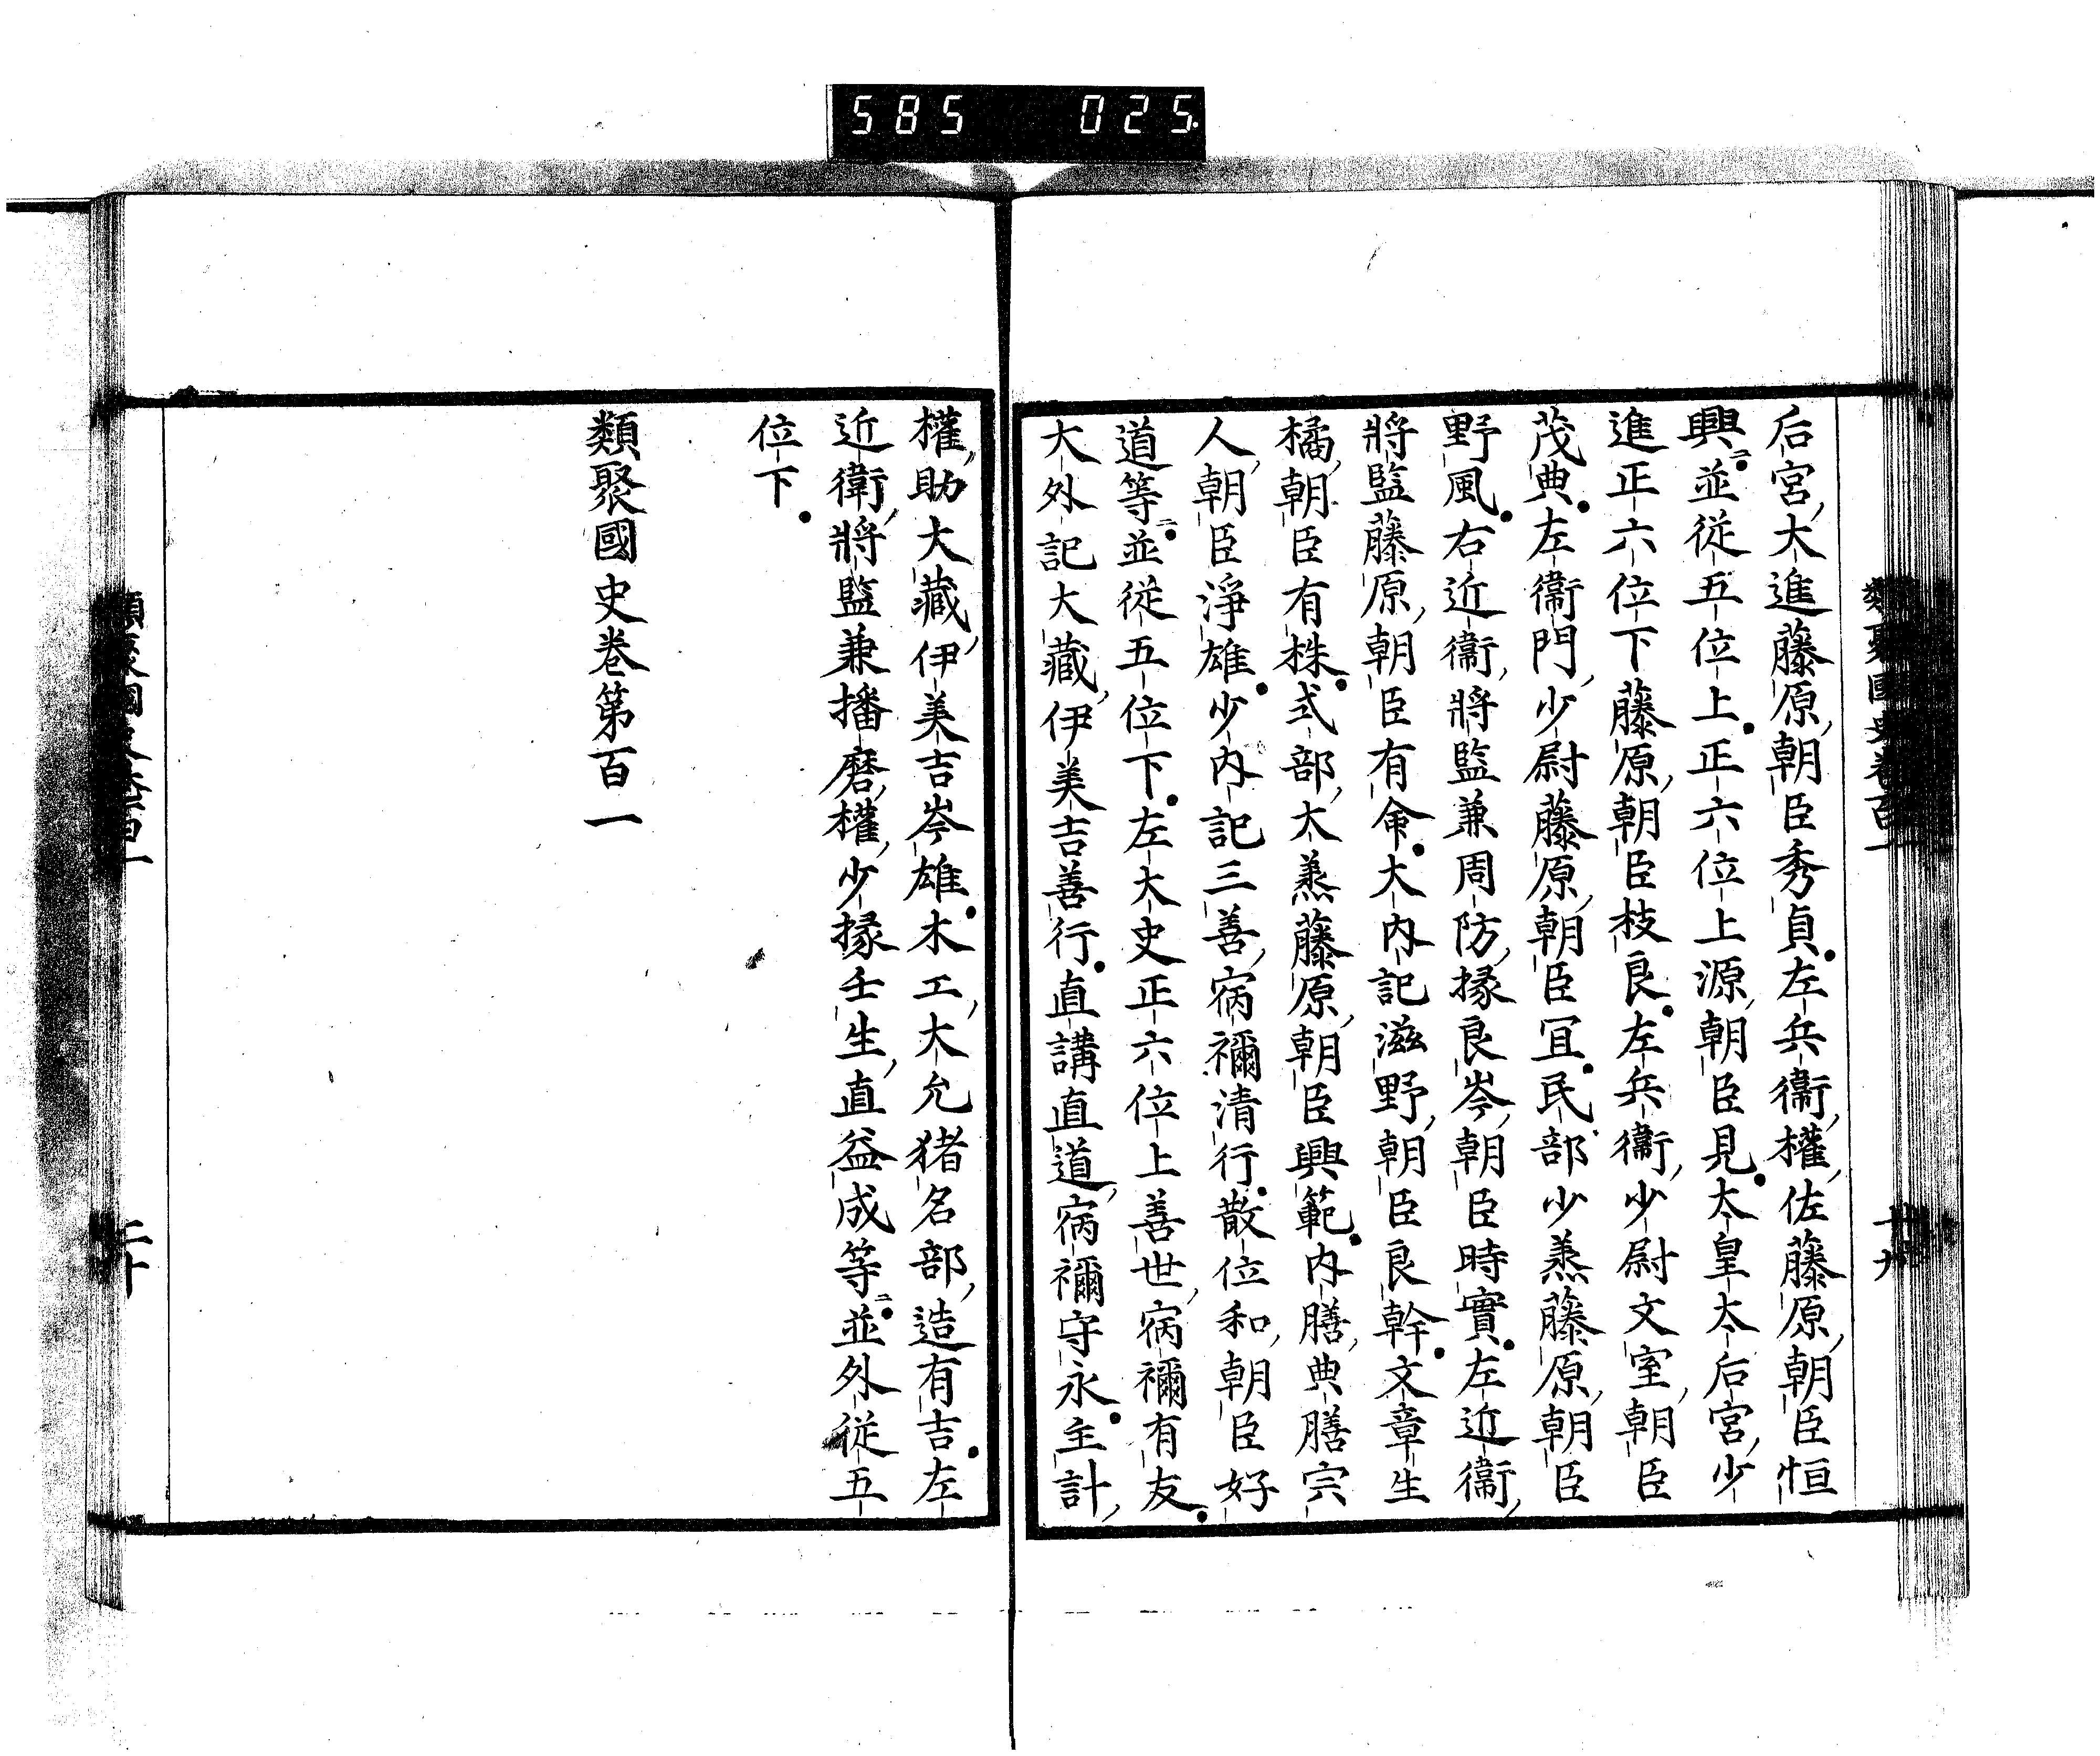 585 025
類聚國史卷百一 十九
后宮大進藤原朝臣秀貞左兵衞權佐藤原朝臣恒
興並從五位上正六位上源朝臣見太皇太后宮少
進正六位下藤原朝臣枝良左兵衞少尉文室朝臣
茂典左衞門少尉藤原朝臣冝民部少丞藤原朝臣
野風右近衞將監兼周防掾良岑朝臣時實左近衞
將監藤原朝臣有命大內記滋野朝臣良幹文章生
橘朝臣有株式部大丞藤原朝臣興範內膳典膳宗
人朝臣淨雄少內記三善宿禰清行散位和朝臣好
道等並從五位下左大史正六位上善世宿禰有友
大外記大藏伊美吉善行直講直道宿禰守永主計
權助大藏伊美吉岑雄木工大允猪名部造有吉左
近衞將監兼播磨權少掾壬生直益成等並外從五
位下
類聚國史卷第百一
類聚國史卷百一 二十